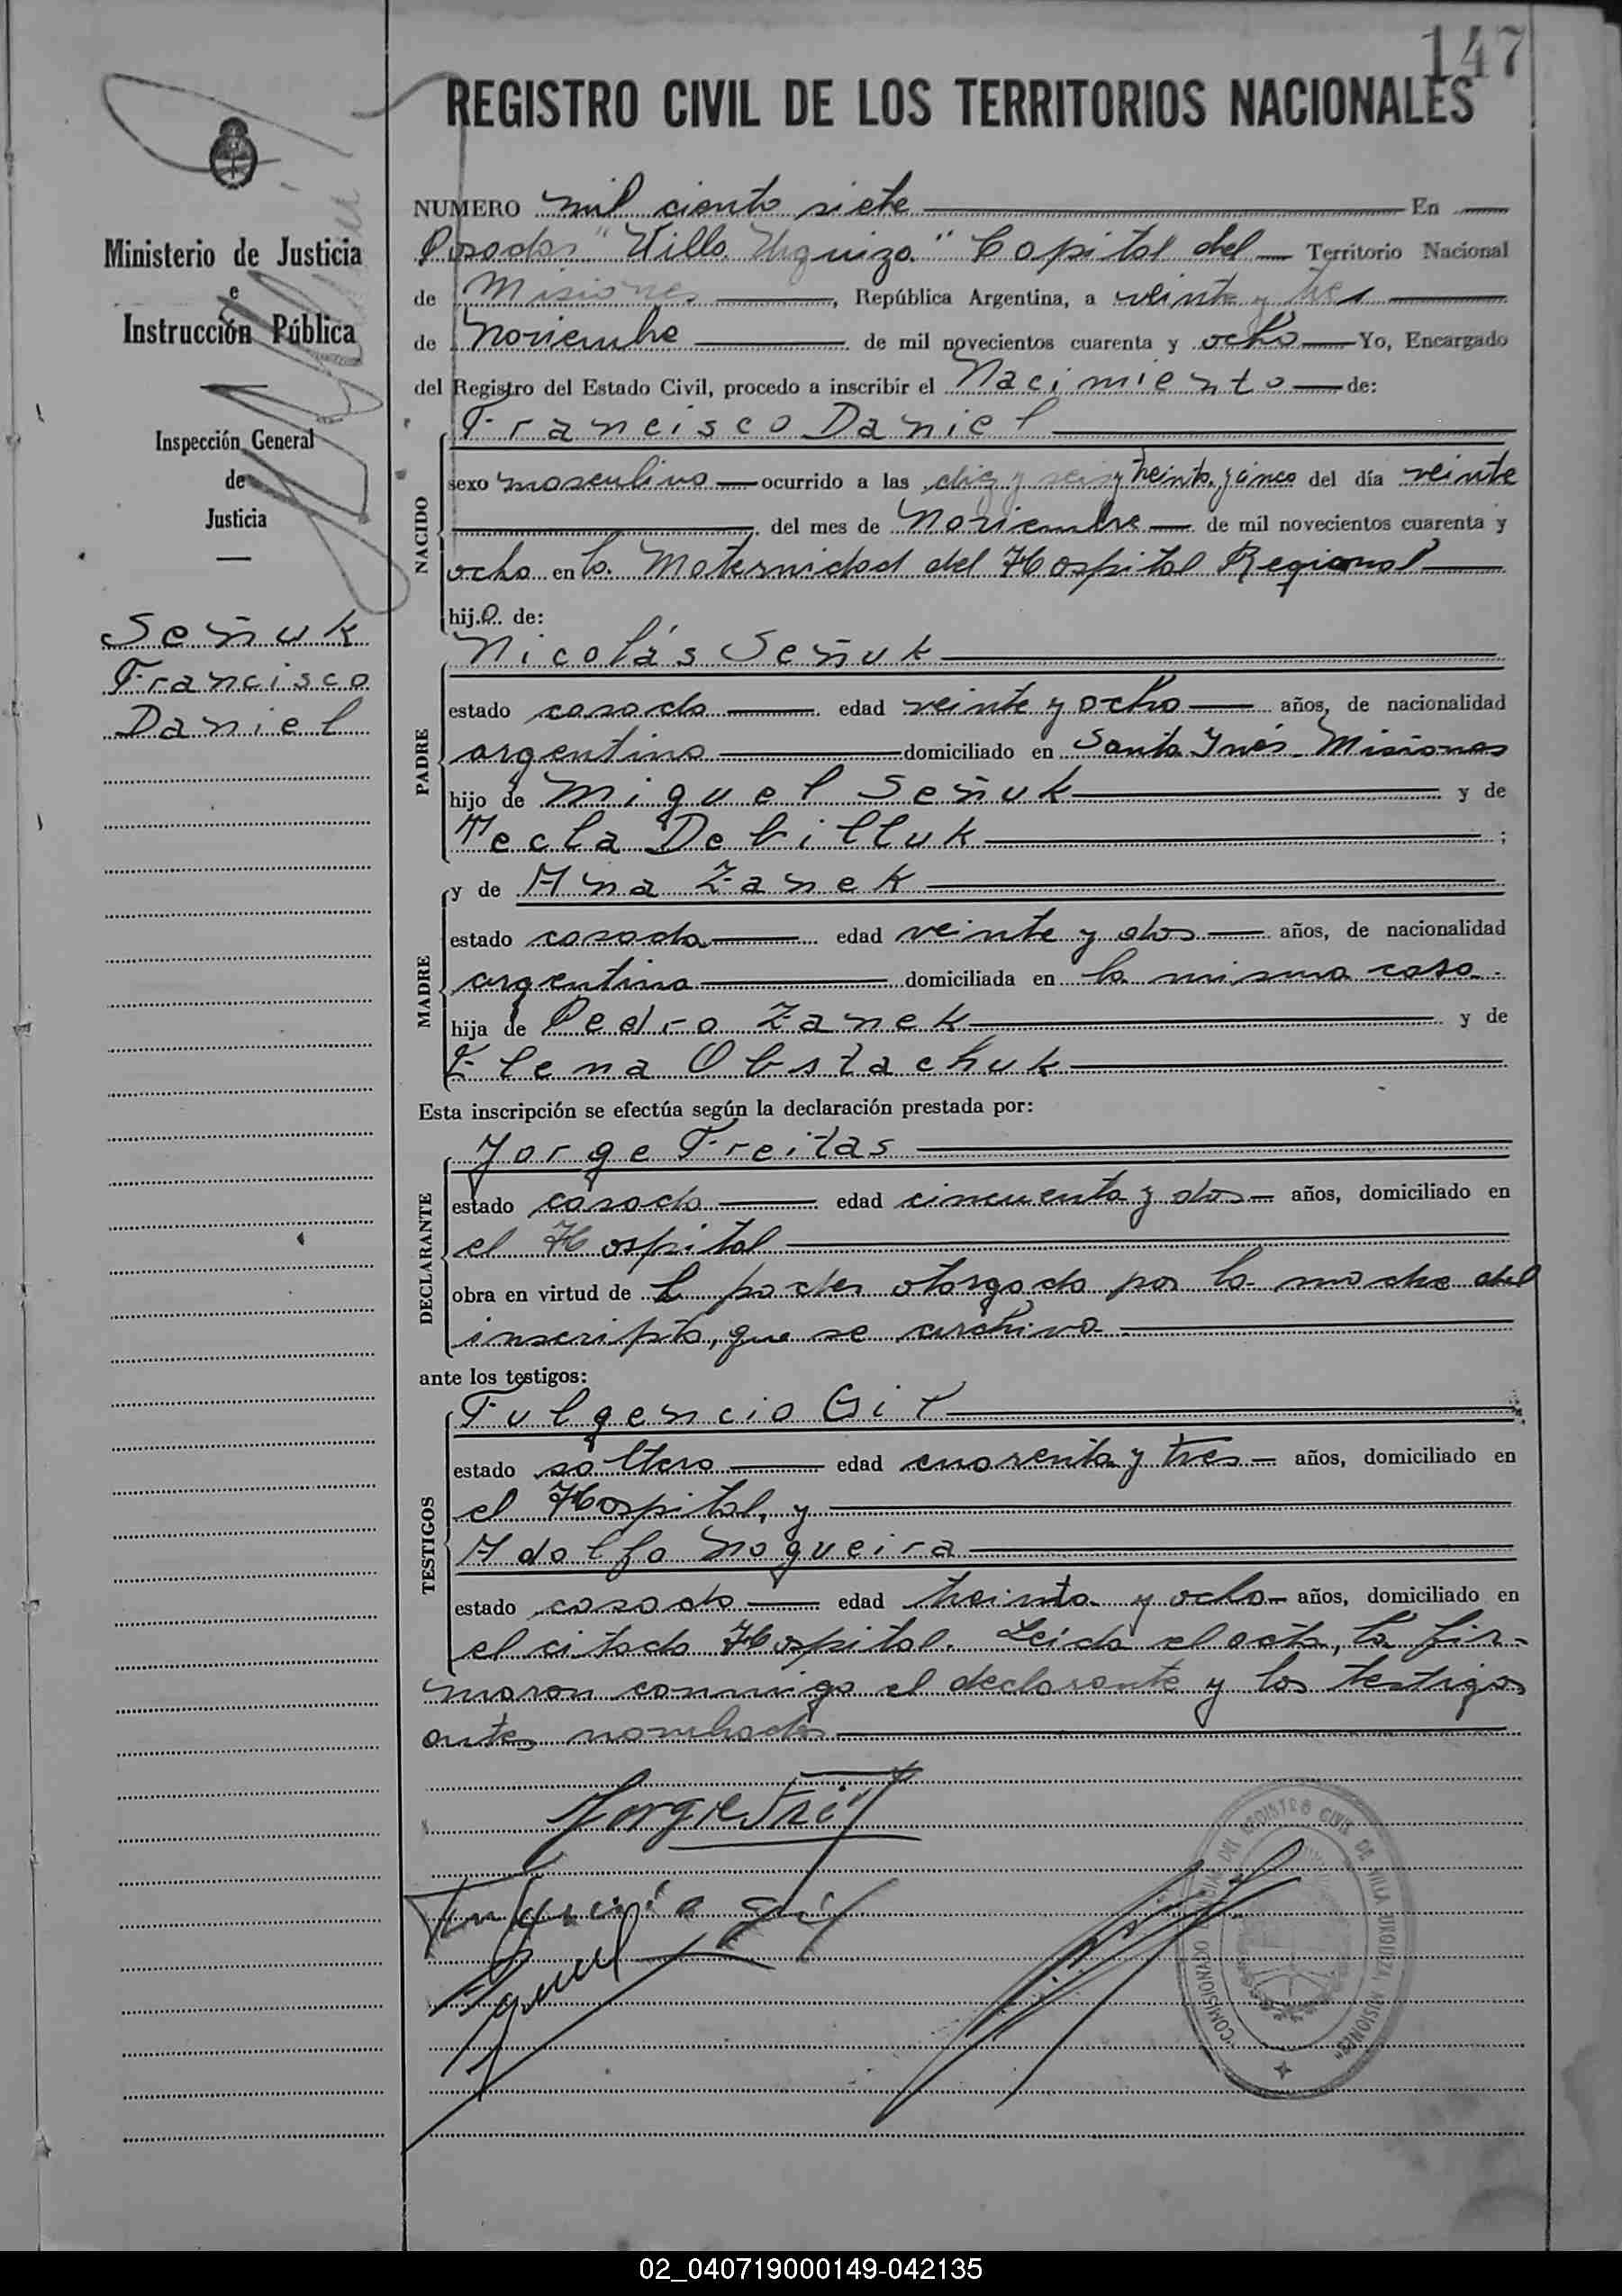 147
REGISTRO CIVIL DE LOS TERRITORIOS NACIONALES
Ministerio de Justicia
e
Instrucción Pública
Inspección General
de
Justicia
Señuk
Francisco
Daniel
NUMERO mil ciento siete En
Posadas "Villa Urquiza" Capital del Territorio Nacional
de Misiones, República Argentina, a veinte y tres
de Noviembre de mil novecientos cuarenta y ocho Yo, Encargado
del Registro del Estado Civil, procedo a inscribir el Nacimiento de:
NACIDO
Francisco Daniel
sexo masculino ocurrido a las diez y seis y treinta y cinco del día veinte
del mes de Noviembre de mil novecientos cuarenta y
ocho en la Maternidad del Hospital Regional
hijo de:
PADRE
Nicolás Señuk
estado casado edad veinte y ocho años, de nacionalidad
argentino domiciliado en Santa Inés Misiones
hijo de Miguel Señuk y de
Tecla Debilluk ;
MADRE
y de Ana Zanek
estado casada edad veinte y dos años, de nacionalidad
argentina domiciliada en la misma casa.
hija de Pedro Zanek y de
Elena Obstachuk
Esta inscripción se efectúa según la declaración prestada por:
DECLARANTE
Jorge Freitas
estado casado edad cincuenta y dos años, domiciliado en
el Hospital
obra en virtud de poder otorgado por la madre del
inscripto, que se archiva.
ante los testigos:
TESTIGOS
Fulgencio Gil
estado soltero edad cuarenta y tres años, domiciliado en
el Hospital, y
Adolfo Nogueira
estado casado edad treinta y ocho años, domiciliado en
el citado Hospital. Leída el acta, la fir-
maron conmigo el declarante y los testigos
antes nombrados
Jorge Freit
Fulgencio Gil
COMISIONADO DEL REGISTRO CIVIL DE VILLA URQUIZA, MISIONES
02_040719000149-042135